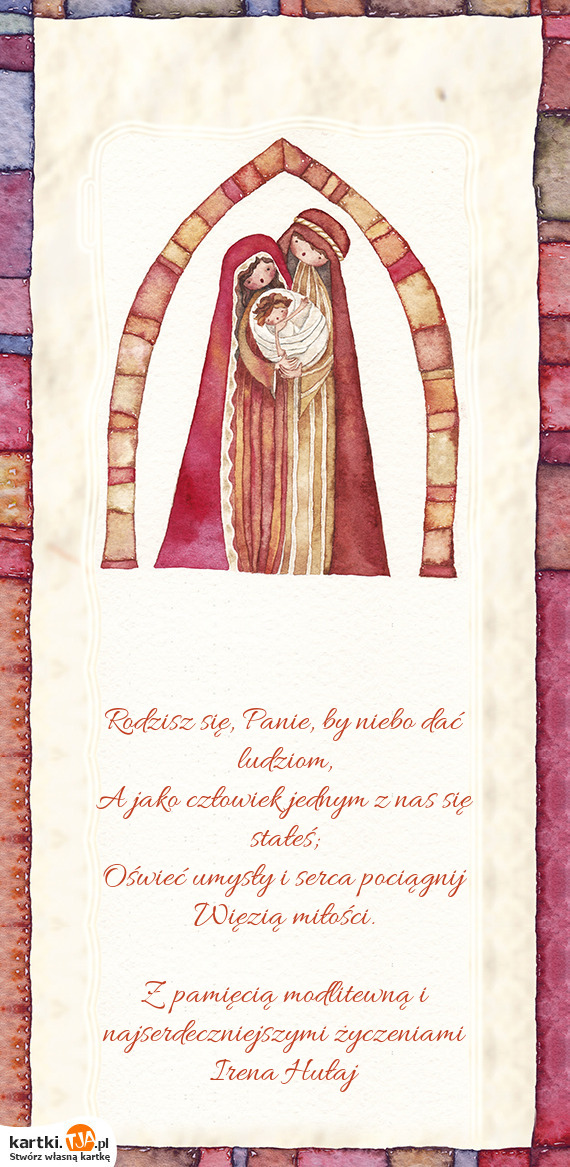 Rodzisz się, Panie, by niebo dać
ludziom,
A jako człowiek jednym z nas się
stałeś;
Oświeć umysły i serca pociągnij
Więzią miłości.
Z pamięcią modlitewną i
najserdeczniejszymi życzeniami
Irena Hułaj
kartki.TJA.pl
Stwórz własną kartkę